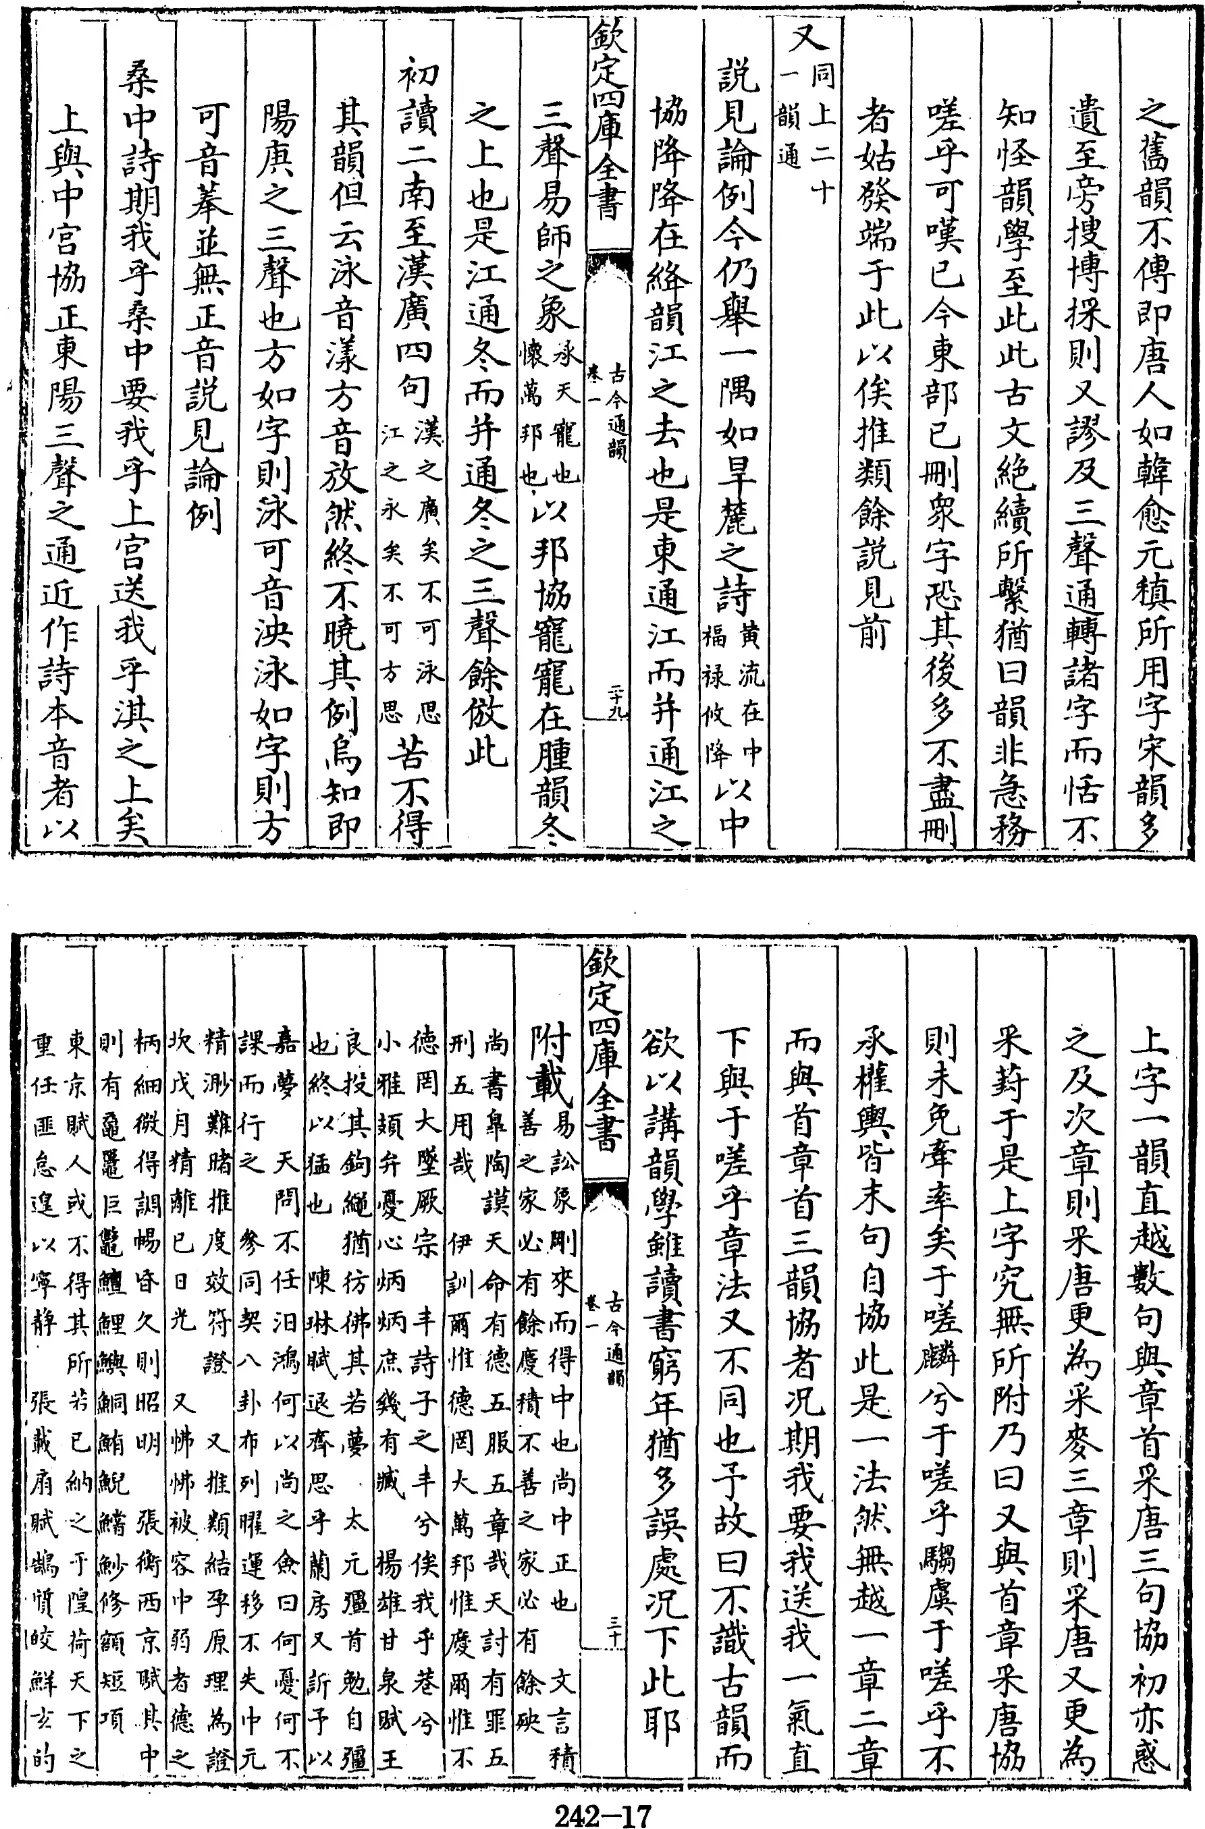 之舊韻不傳即唐人如韓愈元稹所用字宋韻多
遺至旁搜博採則又謬及三聲通轉諸字而恬不
知怪韻學至此此古文絶續所繫猶曰韻非急務
嗟乎可嘆已今東部已刪衆字恐其後多不盡刪
者姑發端于此以俟推類餘説見前
又同上二十
一韻通
説見論例今仍舉一隅如旱麓之詩黄流在中
福禄攸降以中
協降降在絳韻江之去也是東通江而并通江之
欽定四庫全書
古今通韻
卷一
二十九
三聲易師之象承天寵也
懷萬邦也以邦協寵寵在腫韻冬
之上也是江通冬而并通冬之三聲餘倣此
初讀二南至漢廣四句漢之廣矣不可泳思
江之永矣不可方思苦不得
其韻但云泳音漾方音放然終不曉其例烏知即
陽庚之三聲也方如字則泳可音泱泳如字則方
可音搼並無正音説見論例
桑中詩期我乎桑中要我乎上宫送我乎淇之上矣
上與中宫協正東陽三聲之通近作詩本音者以
上字一韻直越數句與章首采唐三句協初亦惑
之及次章則采唐更為采麥三章則采唐又更為
采葑于是上字究無所附乃曰又與首章采唐協
則未免牽率矣于嗟麟兮于嗟乎騶虞于嗟乎不
承權輿皆末句自協此是一法然無越一章二章
而與首章首三韻協者况期我要我送我一氣直
下與于嗟乎章法又不同也予故曰不識古韻而
欲以講韻學雖讀書窮年猶多誤處况下此耶
欽定四庫全書
古今通韻
卷一
三十
附載易訟彖剛來而得中也尚中正也 文言積
善之家必有餘慶積不善之家必有餘殃
尚書臯陶謨天命有德五服五章哉天討有罪五
刑五用哉 伊訓爾惟德罔大萬邦惟慶爾惟不
德罔大墜厥宗 丰詩子之丰兮俟我乎巷兮
小雅頍弁憂心炳炳庶幾有臧 揚雄甘泉賦王
良投其鉤繩猶彷佛其若夢 太元彊首勉自彊
也終以猛也 陳琳賦退齊思乎蘭房又訴予以
嘉夢 天問不任汨鴻何以尚之僉曰何憂何不
課而行之 參同契八卦布列曜運移不失中元
精渺難睹推度效符證 又推類結孕原理為證
坎戊月精離已日光 又怫怫被容中弱者德之
柄細微得調暢昏久則昭明 張衡西京賦其中
則有黿鼉巨鼈鱣鯉鱮鮦鮪鯢鱨魦修額短項
東京賦人或不得其所若已納之于隍荷天下之
重任匪怠遑以寧静 張載扇賦鵠質皎鮮玄的
242-17